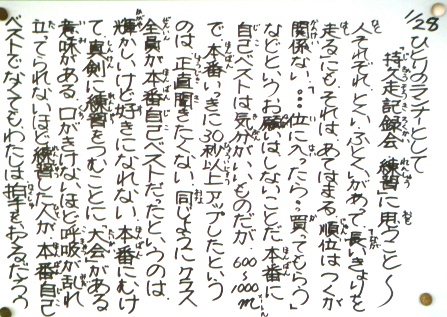 1/28
ひとりのランナーとして
〜持久走記録会「練習」に思うこと〜
人それぞれ、といふくくりがあって、長いきょりを
走るにもそれはあてはまる。順位はつくが
関係ない。「○○位に入ったら○○買ってもらう」
などというお願いはしないことだ。本番に
自己ベストは気分がいいものだが、600〜1000m
で、本番いっきに30秒以上アップしたという
のは、正直聞きたくない。同じようにクラス
全員が本番自己ベストだったというのは、
輝かしいけど好きになれない。本番にむけ
て真剣に練習をつむことに「大会」がある
意味がある。口がきけないほど呼吸が乱れ
立ってられないほど練習した人が、本番自己
ベストでなくてもわたしは拍手をおくるだろう